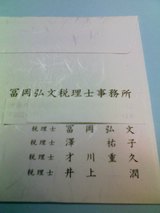 冨岡弘文税理士事務所
税理士 冨岡弘文
税理士 澤祐子
税理士 才川重久
税理士 井上潤